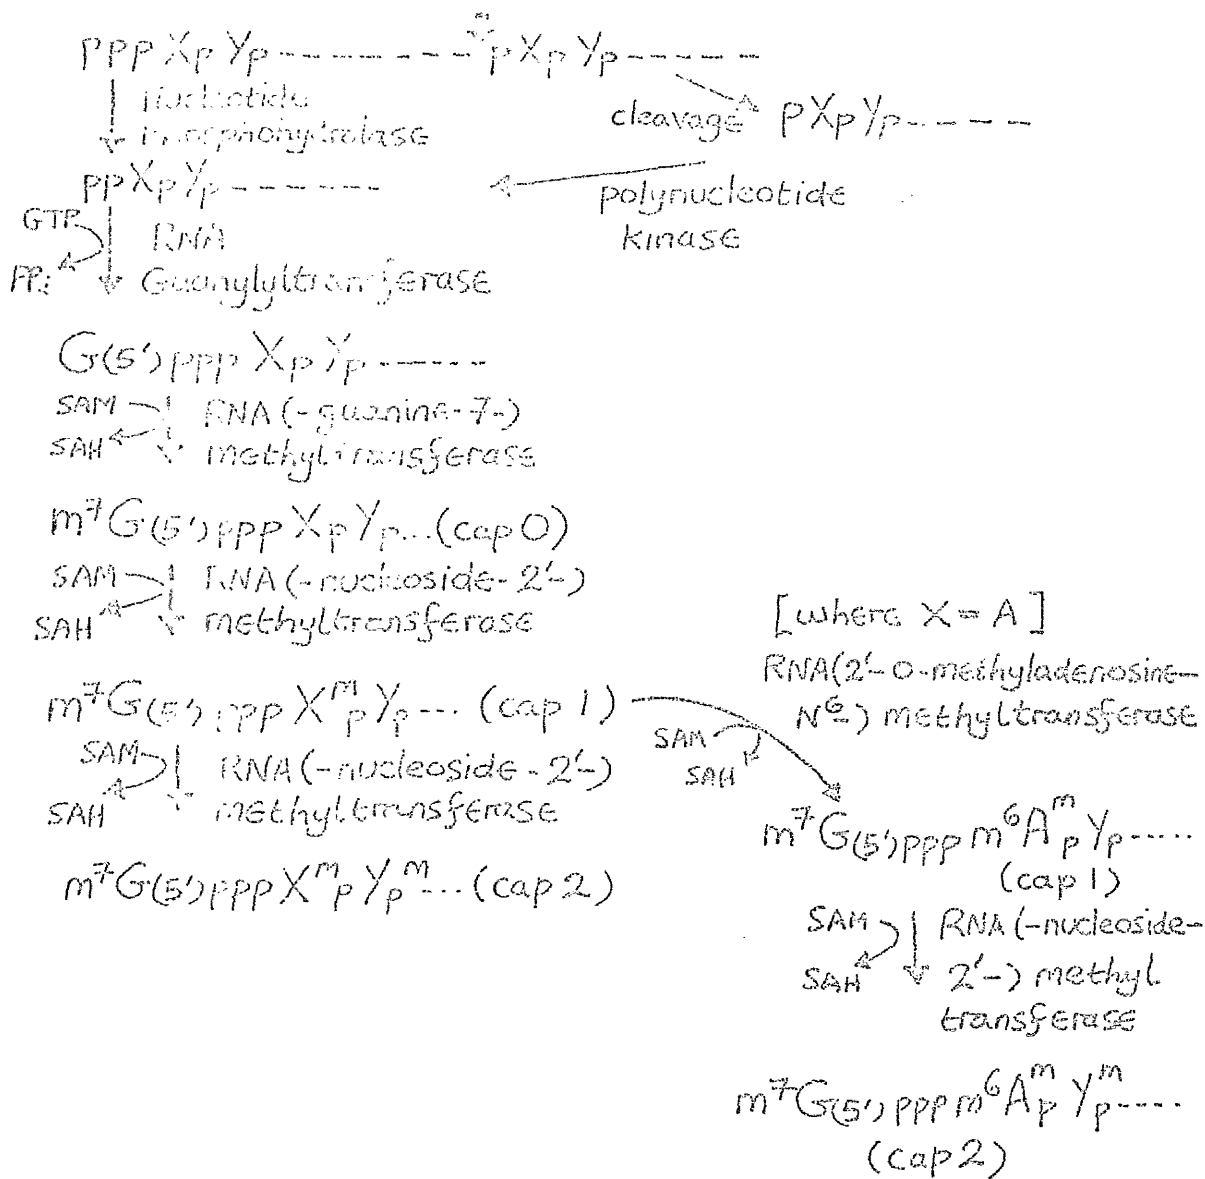 ppp Xp Yp - - - - - - - - pXp Yp - - - - -
Nucleotide
Phosphohydrolase
cleavage
pXpYp - - - - -
ppXpYp - - - - - -
polynucleotide
kinase
GTP
PPi
RNA
Guanylyltransferase
G(5')ppp Xp Yp - - - - - -
SAM
SAH
RNA (-guanine-7-)
methyltransferase
m⁷G(5')ppp XpYp... (cap 0)
SAM
SAH
RNA (-nucleoside-2'-)
methyltransferase
m⁷G(5')ppp XᵐpYp... (cap 1)
SAM
SAH
RNA (-nucleoside-2'-)
methyltransferase
m⁷G(5')ppp Xᵐp Ypᵐ... (cap 2)
[where X = A]
RNA(2'-O-methyladenosine-
N⁶-) methyltransferase
SAM
SAH
m⁷G(5')ppp m⁶AᵐpYp.....
(cap 1)
SAM
SAH
RNA (-nucleoside-
2'-) methyl
transferase
m⁷G(5')ppp m⁶Aᵐp Yᵐp----
(cap 2)